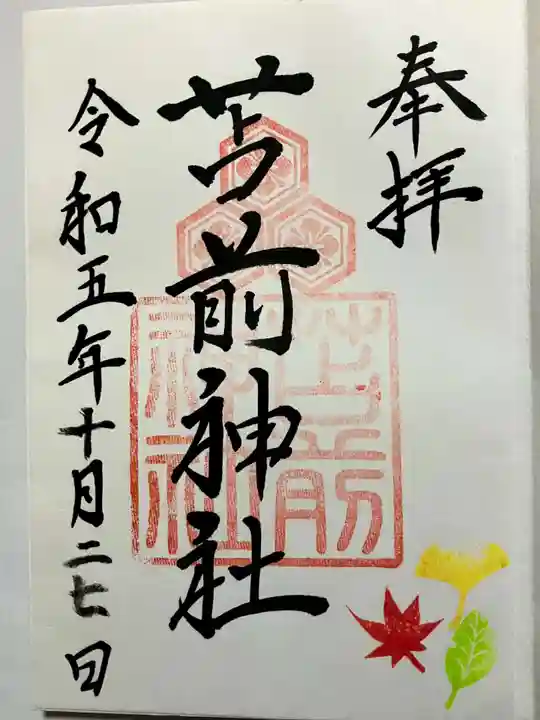 奉拝
苫前神社
苫前神社
令和五年十月二七日